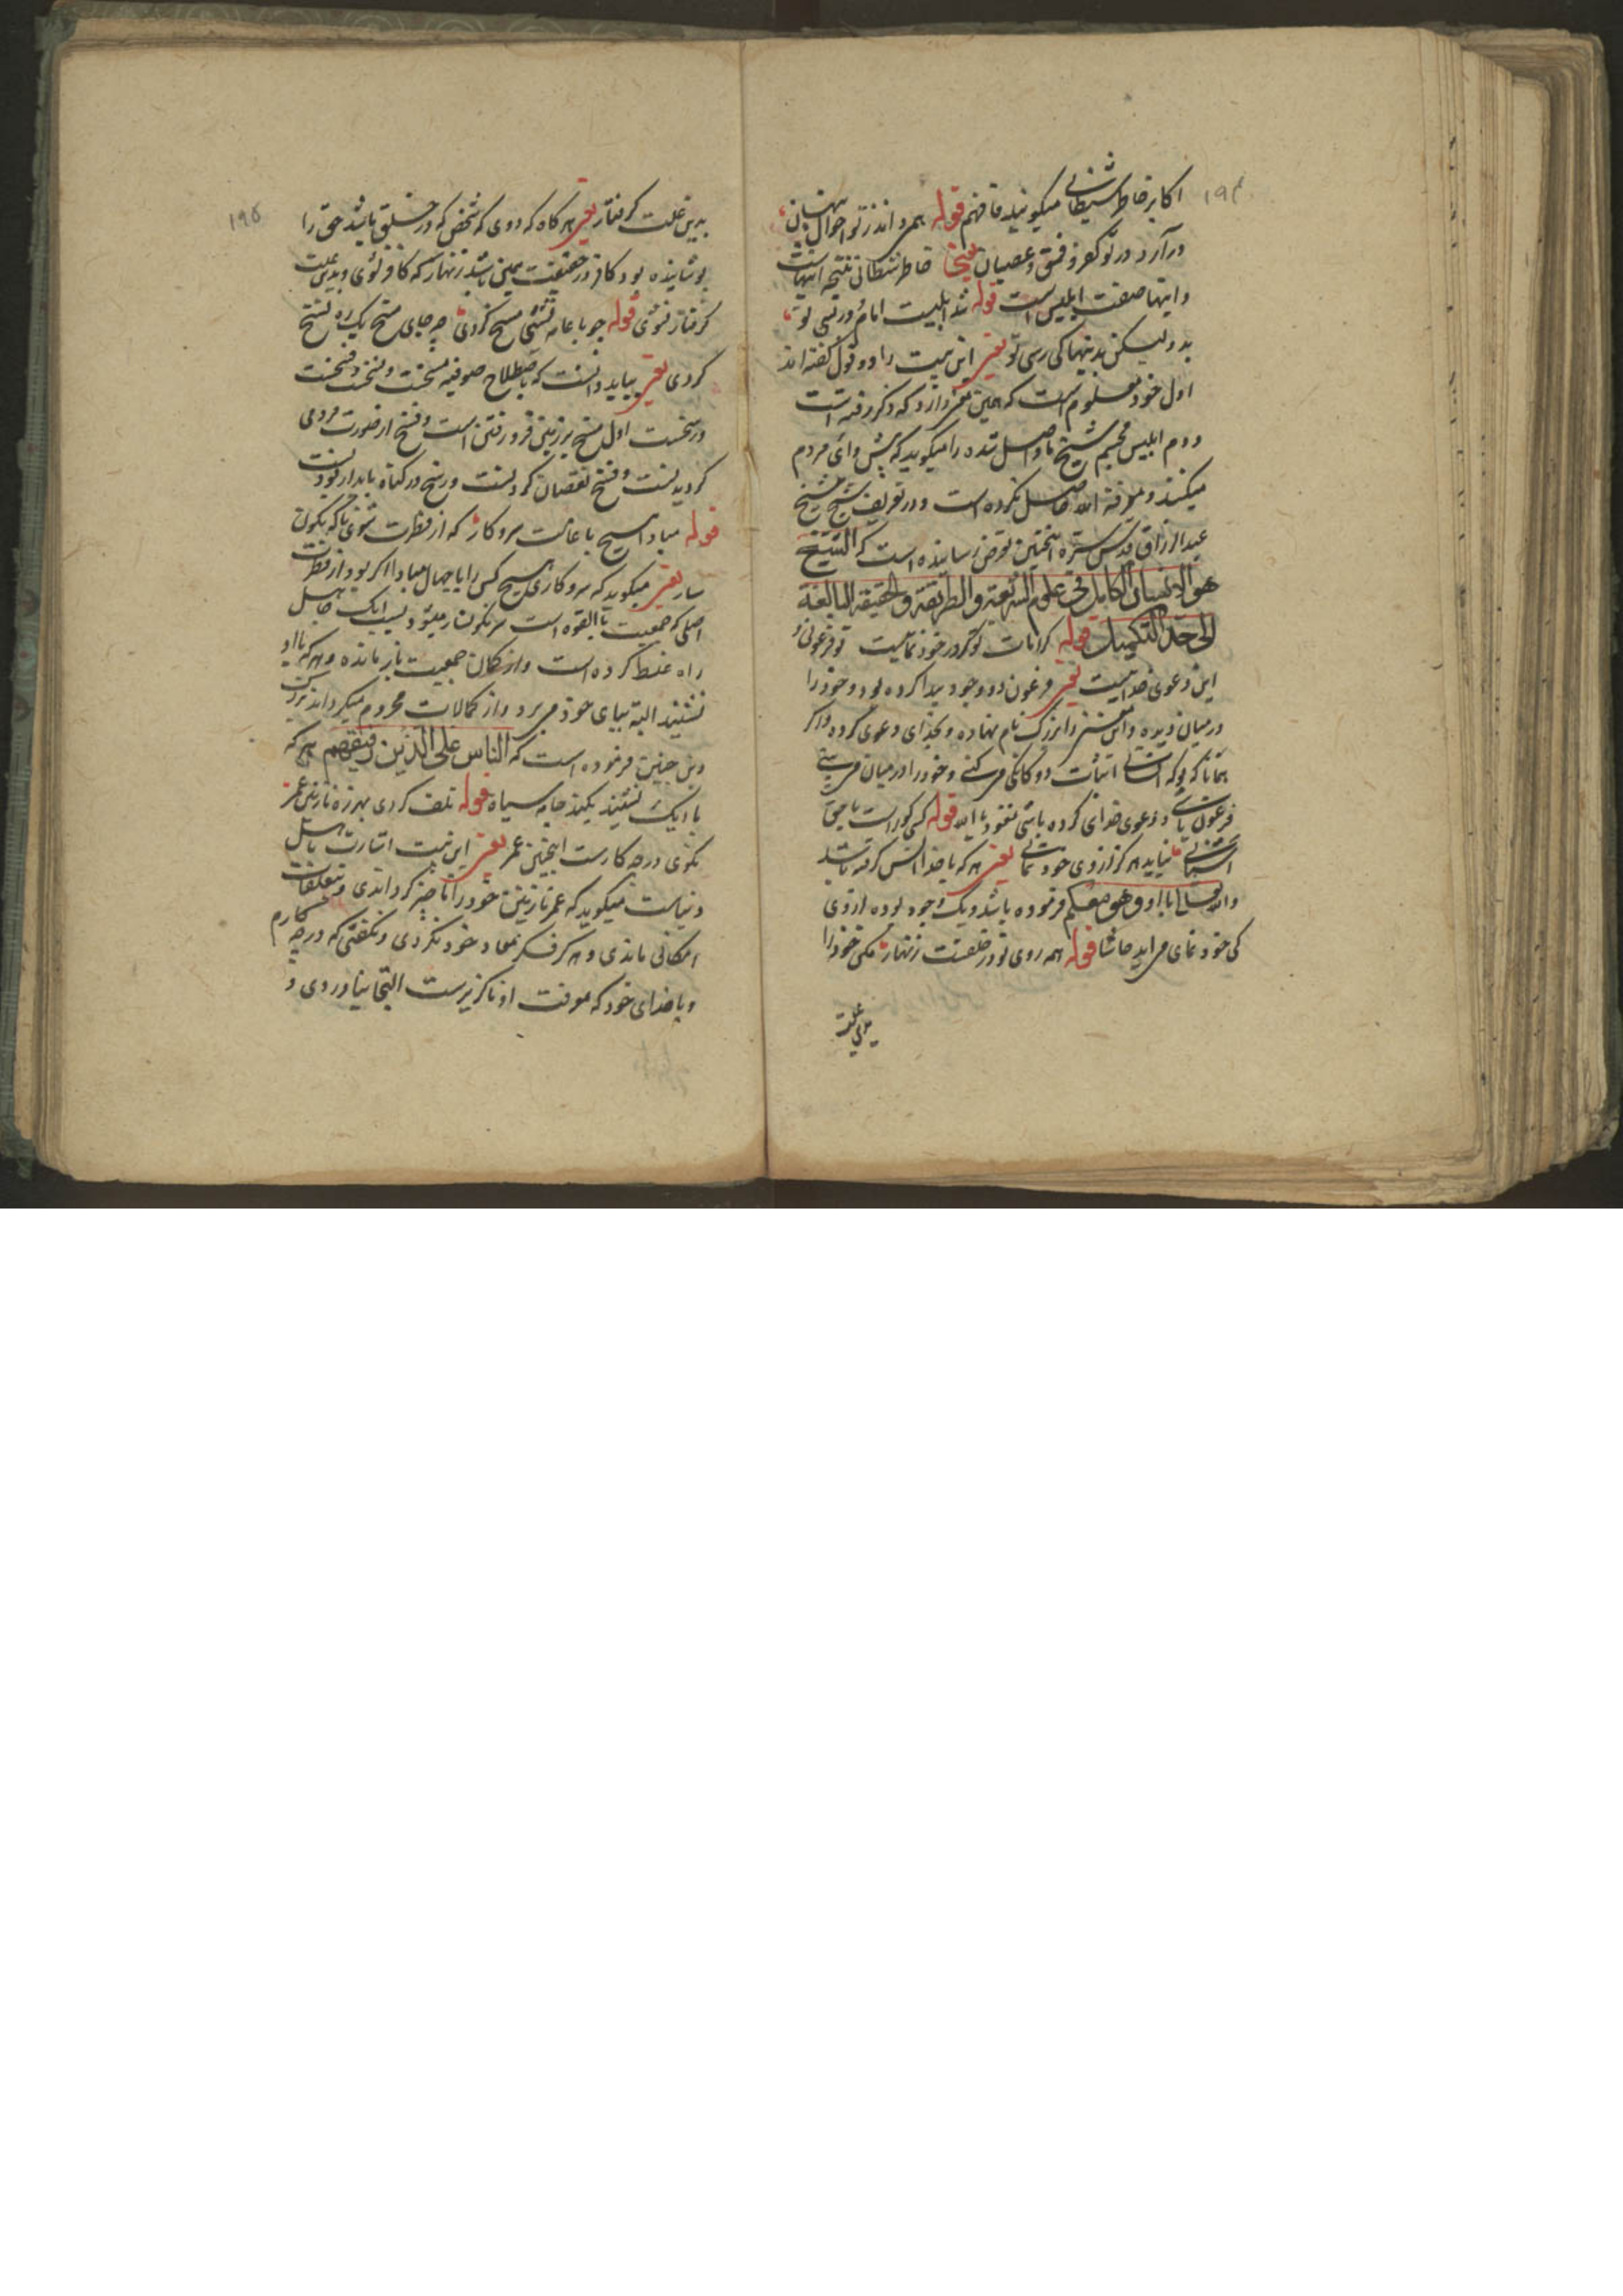 ۱۹۴
اکابر خاطر شیطانی میگویند فافهم قوله همه دانند زتو احوال پنهان
در آرد در تو کفر و فسق و عصیان یعنی خاطر شیطانی نتیجه اینهاست
و اینها صفت ابلیس است قوله شد ابلیست امام و در پسی تو
بدو لیکن بدینها کی رسی تو یعنی این بیت را دو قول گفته اند
اول خود معلوم است که همین معنی دارد که ذکر رفته است
دوم ابلیس مجسم شیخ نا واصل شده را میگوید که پیشوائی مردم
میکند و معرفة الله حاصل نکرده است و در تعریف شیخ شیخ
عبد الرزاق قدس سره اینچنین تعرض رسانیده است که الشیخ
هو الانسان الکامل فی علوم الشریعة و الطریقة و الحقیقة البالغة
الی حد التکمیل قوله کرامات تو گر در خود نمائیست تو فرعونی و
این دعوی خدائیست یعنی فرعون دو وجود پیدا کرده بود و خود را
در میان دیده و این را بزرگ نام نهاده و بخدای دعوی کرده و اگر
همانا که تو که اثبات دوگانگی میکنی و خود را در میان می بینی
فرعون باشی و دعوی خدای کرده باشی نعوذ بالله قوله کسی کو راست با حق
آشنائی نیاید هرگز از وی خود نمائی یعنی هرکه با خدا انس گرفته باشد
و الله تعالی با او و هو معکم فرموده باشد و یک وجود بوده از وی
کی خود نمای می آید حاشا قوله همه روی تو در خلقست زنهار مکن خود را
بدین علت
۱۹۵
بدین علت گرفتار یعنی هرگاه که روی که شخص که در خلق باشد حق را
پوشانیده بود کافر در حقیقت همین باشد زنهار که کافر نشوی و بدین علت
گرفتار نشوی قوله چو با عامه نشینی مسخ گردی چه جای مسخ یک ره نسخ
گردی یعنی بباید دانست که باصطلاح صوفیه مسخست و نسخست و فسخست
و رسخست اول مسخ بر زمین فرو رفتن است و فسخ از صورت مردمی
گردیدنست و فسخ نقصان کردنست و رسخ در گناه پایدار بودنست
قوله مبادا هیچ با عامت سر و کار که از فطرت شوی ناگه نگون
سار یعنی میگوید که سر و کاری هیچ کس را با جهال مبادا اگر بود از فطرت
اصلی که جمعیت با القوه است سرنگونسار میشود بسبب آنک جاهل
راه غلط کرده است و از مکان جمعیت باز مانده و هرکه با او
نشیند البته بپای خود می برد و از کمالات محروم میگرداند بزرگ
دین چنین فرموده است که الناس علی الدین رفیقهم هرکه
با دیگ نشیند بکند جامه سیاه قوله تلف کردی بهرزه نازنین عمر
نگوی در چه کارست اینچنین عمر یعنی این بیت اشارت باهل
دنیاست میگوید که عمر نازنین خود را ناچیز گرداندی و بتعلقات
امکانی ماندی و هرگز فکر معاد خود نکردی و نگفتی که در چه کارم
و با خدای خود که معرفت او ناگزیرست التجا نیاوردی و